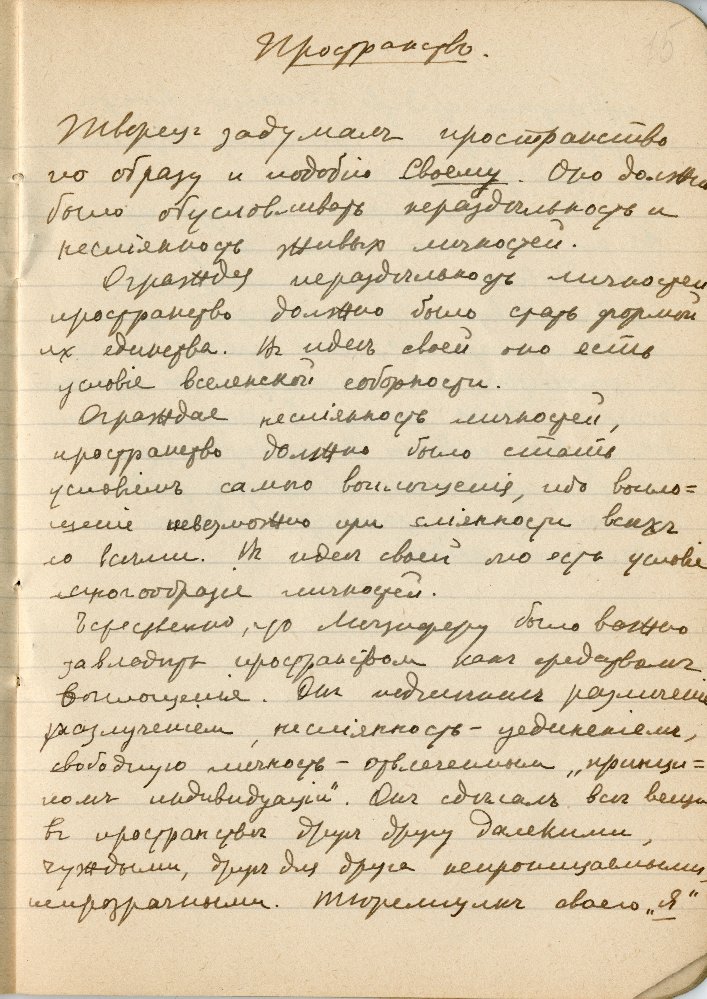 15
Пространство.
Творецъ задумалъ пространство
по образу и подобію Своему. Оно должно
было обусловливать нераздѣльность и
несліянность живыхъ личностей.
Ограждая нераздѣльность личностей
пространство должно было стать формой
ихъ единства. Въ идеѣ своей оно есть
условіе вселенской соборности.
Ограждая несліянность личностей,
пространство должно было стать
условіемъ самаго воплощенія, ибо вопло=
щеніе невозможно при сліянности всѣхъ
со всѣми. Въ идеѣ своей оно есть условіе
многообразія личностей.
Естественно, что Люциферу было важно
завладѣть пространствомъ какъ средствомъ
воплощенія. Онъ подмѣнилъ различеніе
разлученіемъ, несліянность – уединеніемъ,
свободную личность – отвлеченнымъ „принци=
помъ индивидуаціи“. Онъ сдѣлалъ всѣ вещи
въ пространствѣ другъ другу далекими,
чуждыми, другъ для друга непроницаемыми,
непрозрачными. своего „Я“